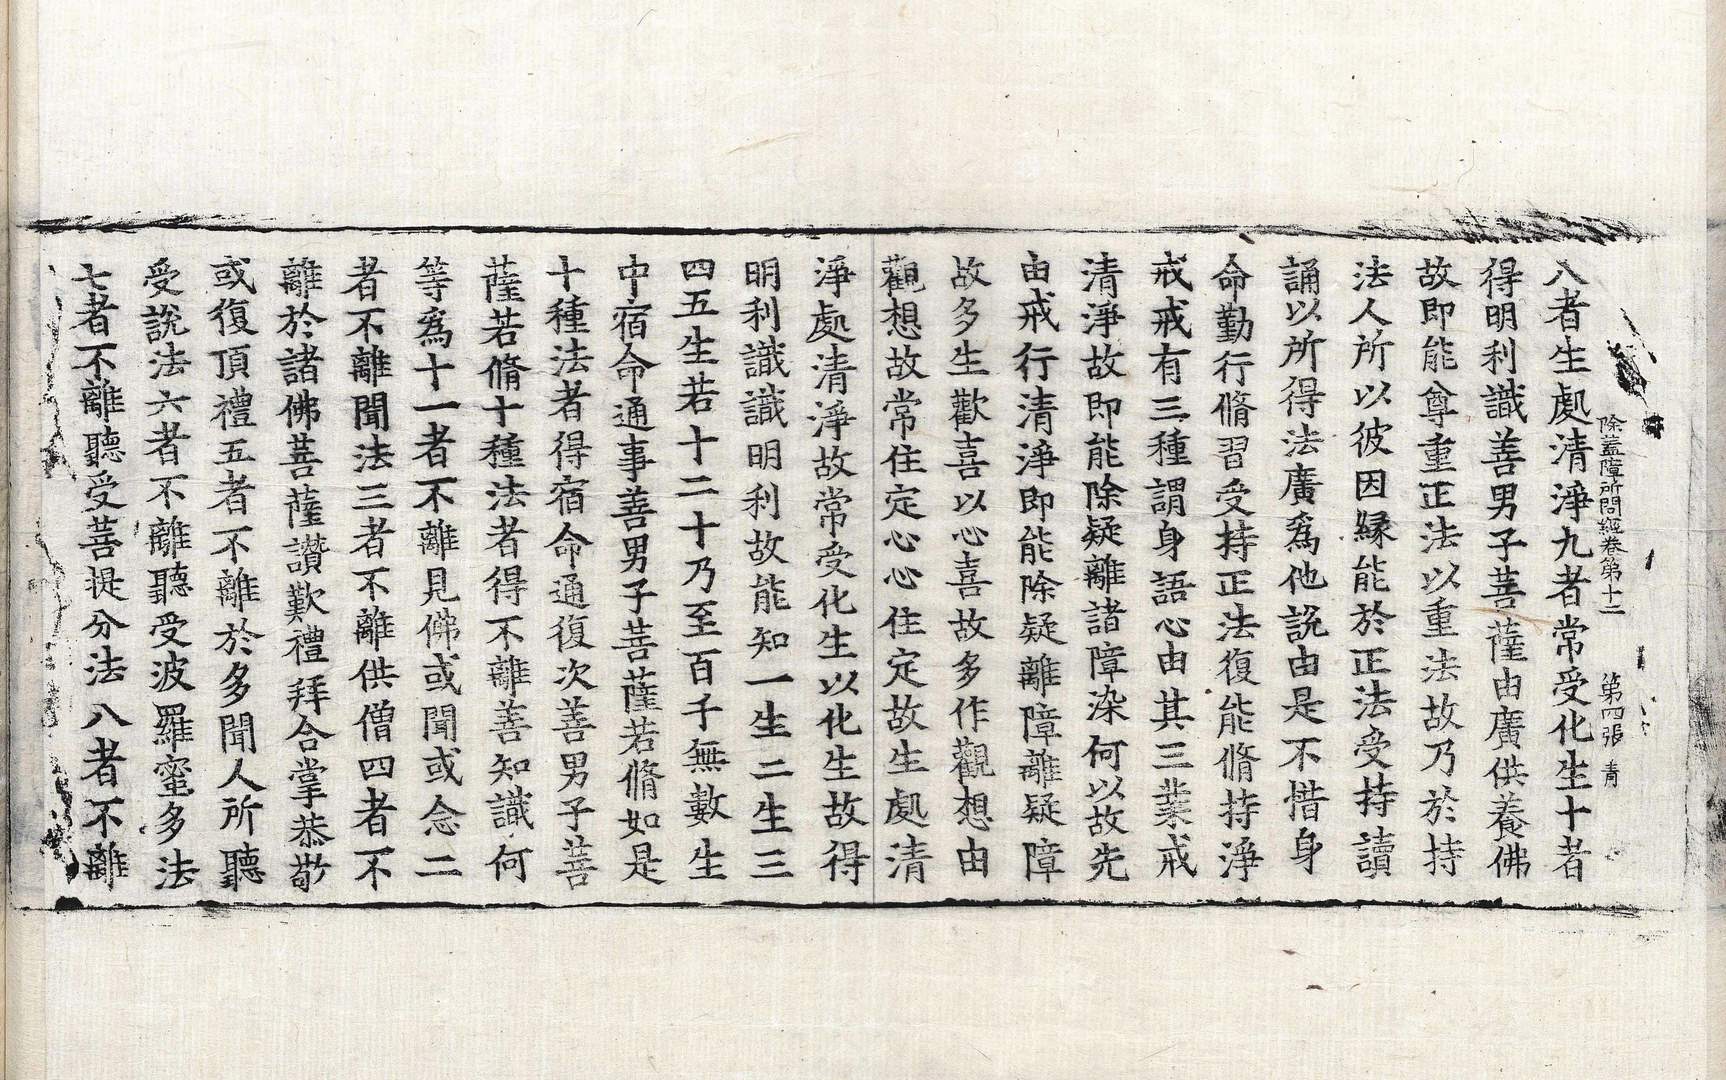 除蓋障所問經卷第十二　第四張　青
八者生處清淨九者常受化生十者
得明利識善男子菩薩由廣供養佛
故即能尊重正法以重法故乃於持
法人所以彼因緣能於正法受持讀
誦以所得法廣爲他說由是不惜身
命勤行脩習受持正法復能脩持淨
戒戒有三種謂身語心由其三業戒
清淨故即能除疑離諸障染何以故先
由戒行清淨即能除疑離障離疑障
故多生歡喜以心喜故多作觀想由
觀想故常住定心心住定故生處清
淨處清淨故常受化生以化生故得
明利識識明利故能知一生二生三
四五生若十二十乃至百千無數生
中宿命通事善男子菩薩若脩如是
十種法者得宿命通復次善男子菩
薩若脩十種法者得不離善知識何
等爲十一者不離見佛或聞或念二
者不離聞法三者不離供僧四者不
離於諸佛菩薩讚歎禮拜合掌恭敬
或復頂禮五者不離於多聞人所聽
受說法六者不離聽受波羅蜜多法
七者不離聽受菩提分法八者不離